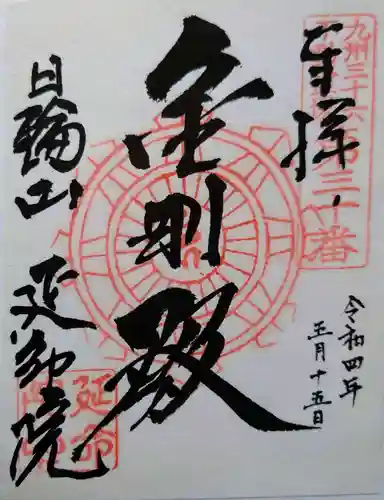 九州三十六
第三十番
奉拝
令和四年
五月十五日
金剛殿
日輪山
延命院
延命